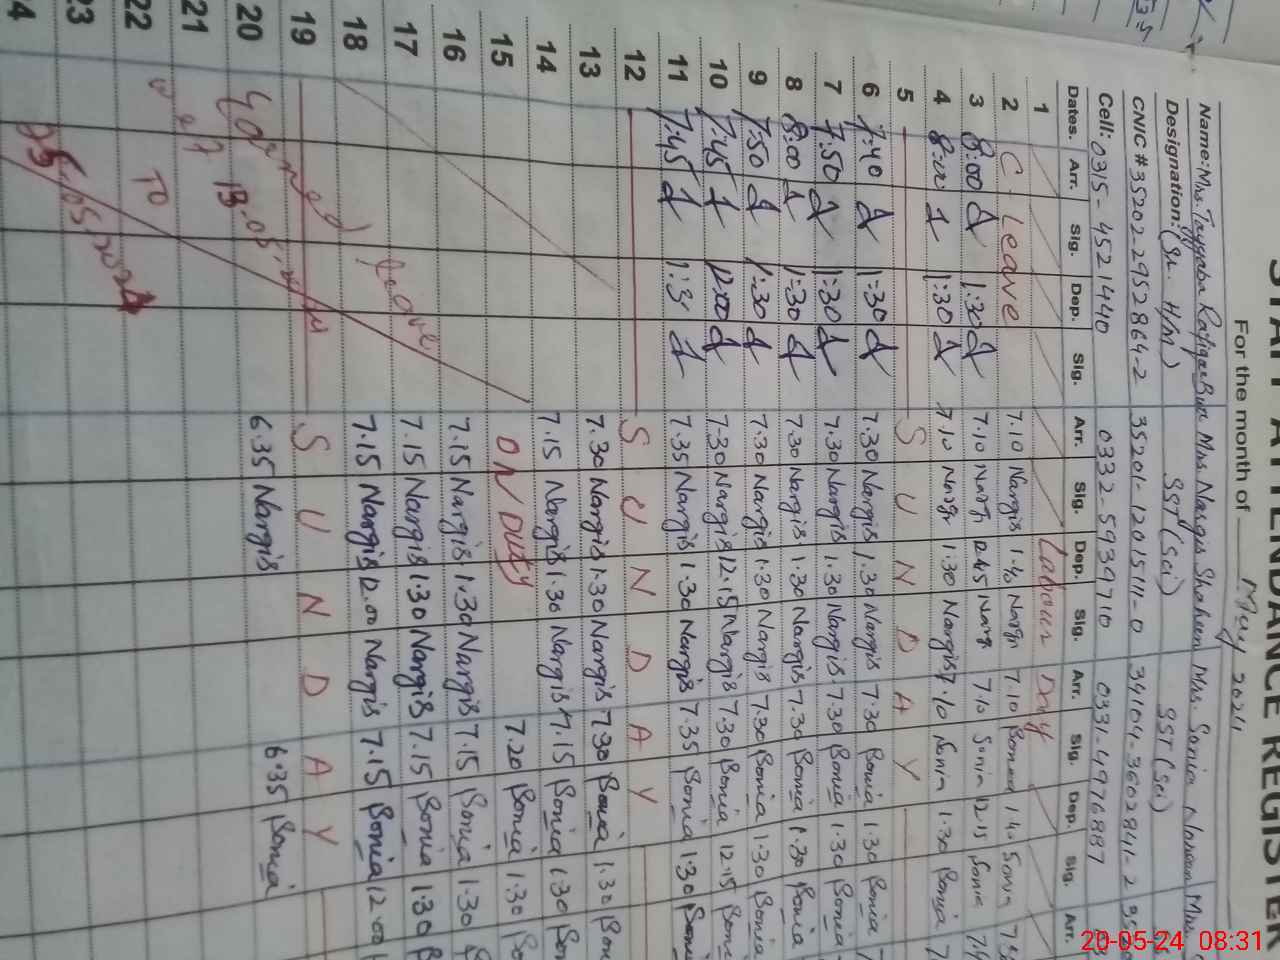 STAFF ATTENDANCE REGISTER
For the month of May 2024
Name: Mrs. Tayyaba Mrs Nargis Shaheen Mrs. Sonia
Designation: (Sr. H/M) SST (Sci) SST (Sci)
CNIC # 35202-2952864-2 35201-1201511-0 34104-3602841-2
Cell: 0315-4521440 0332-5939710 0331-4976887
Dates. Arr. Sig. Dep. Sig. Arr. Sig. Dep. Sig. Arr. Sig. Dep. Sig. Arr.
1 Labour Day
2 C-Leave 7.10 Nargis 1.40 Nargis 7.10 Sonia 1.40 Sonia
3 8:00 1:30 7.10 Nargis 12.45 Nargis 7.10 Sonia 12.15 Sonia
4 8:00 1:30 7.10 Nargis 1.30 Nargis 7.10 Sonia 1.30 Sonia
5 SUNDAY
6 7:40 1:30 7.30 Nargis 1.30 Nargis 7.30 Sonia 1.30 Sonia
7 7:50 1:30 7.30 Nargis 1.30 Nargis 7.30 Sonia 1.30 Sonia
8 8:00 1:30 7.30 Nargis 1.30 Nargis 7.30 Sonia 1.30 Sonia
9 7:50 1:30 7.30 Nargis 1.30 Nargis 7.30 Sonia 1.30 Sonia
10 7:45 12:00 7.30 Nargis 12.15 Nargis 7.30 Sonia 12.15 Sonia
11 7:45 1:3 7.35 Nargis 1.30 Nargis 7.35 Sonia 1.30 Sonia
12 SUNDAY
13 7.30 Nargis 1.30 Nargis 7.30 Sonia 1.30 Sonia
14 7.15 Nargis 1.30 Nargis 7.15 Sonia 1.30
15 ON Duty 7.20 Sonia 1.30
16 7.15 Nargis 1.30 Nargis 7.15 Sonia 1.30
17 7.15 Nargis 1.30 Nargis 7.15 Sonia 1.30
18 7.15 Nargis 12.00 Nargis 7.15 Sonia 12.00
19 SUNDAY
20 6.35 Nargis 6.35 Sonia
Earned Leave
w.e.f 13.05.2024
TO
25.05.2024
21
22
23
20-05-24 08:31